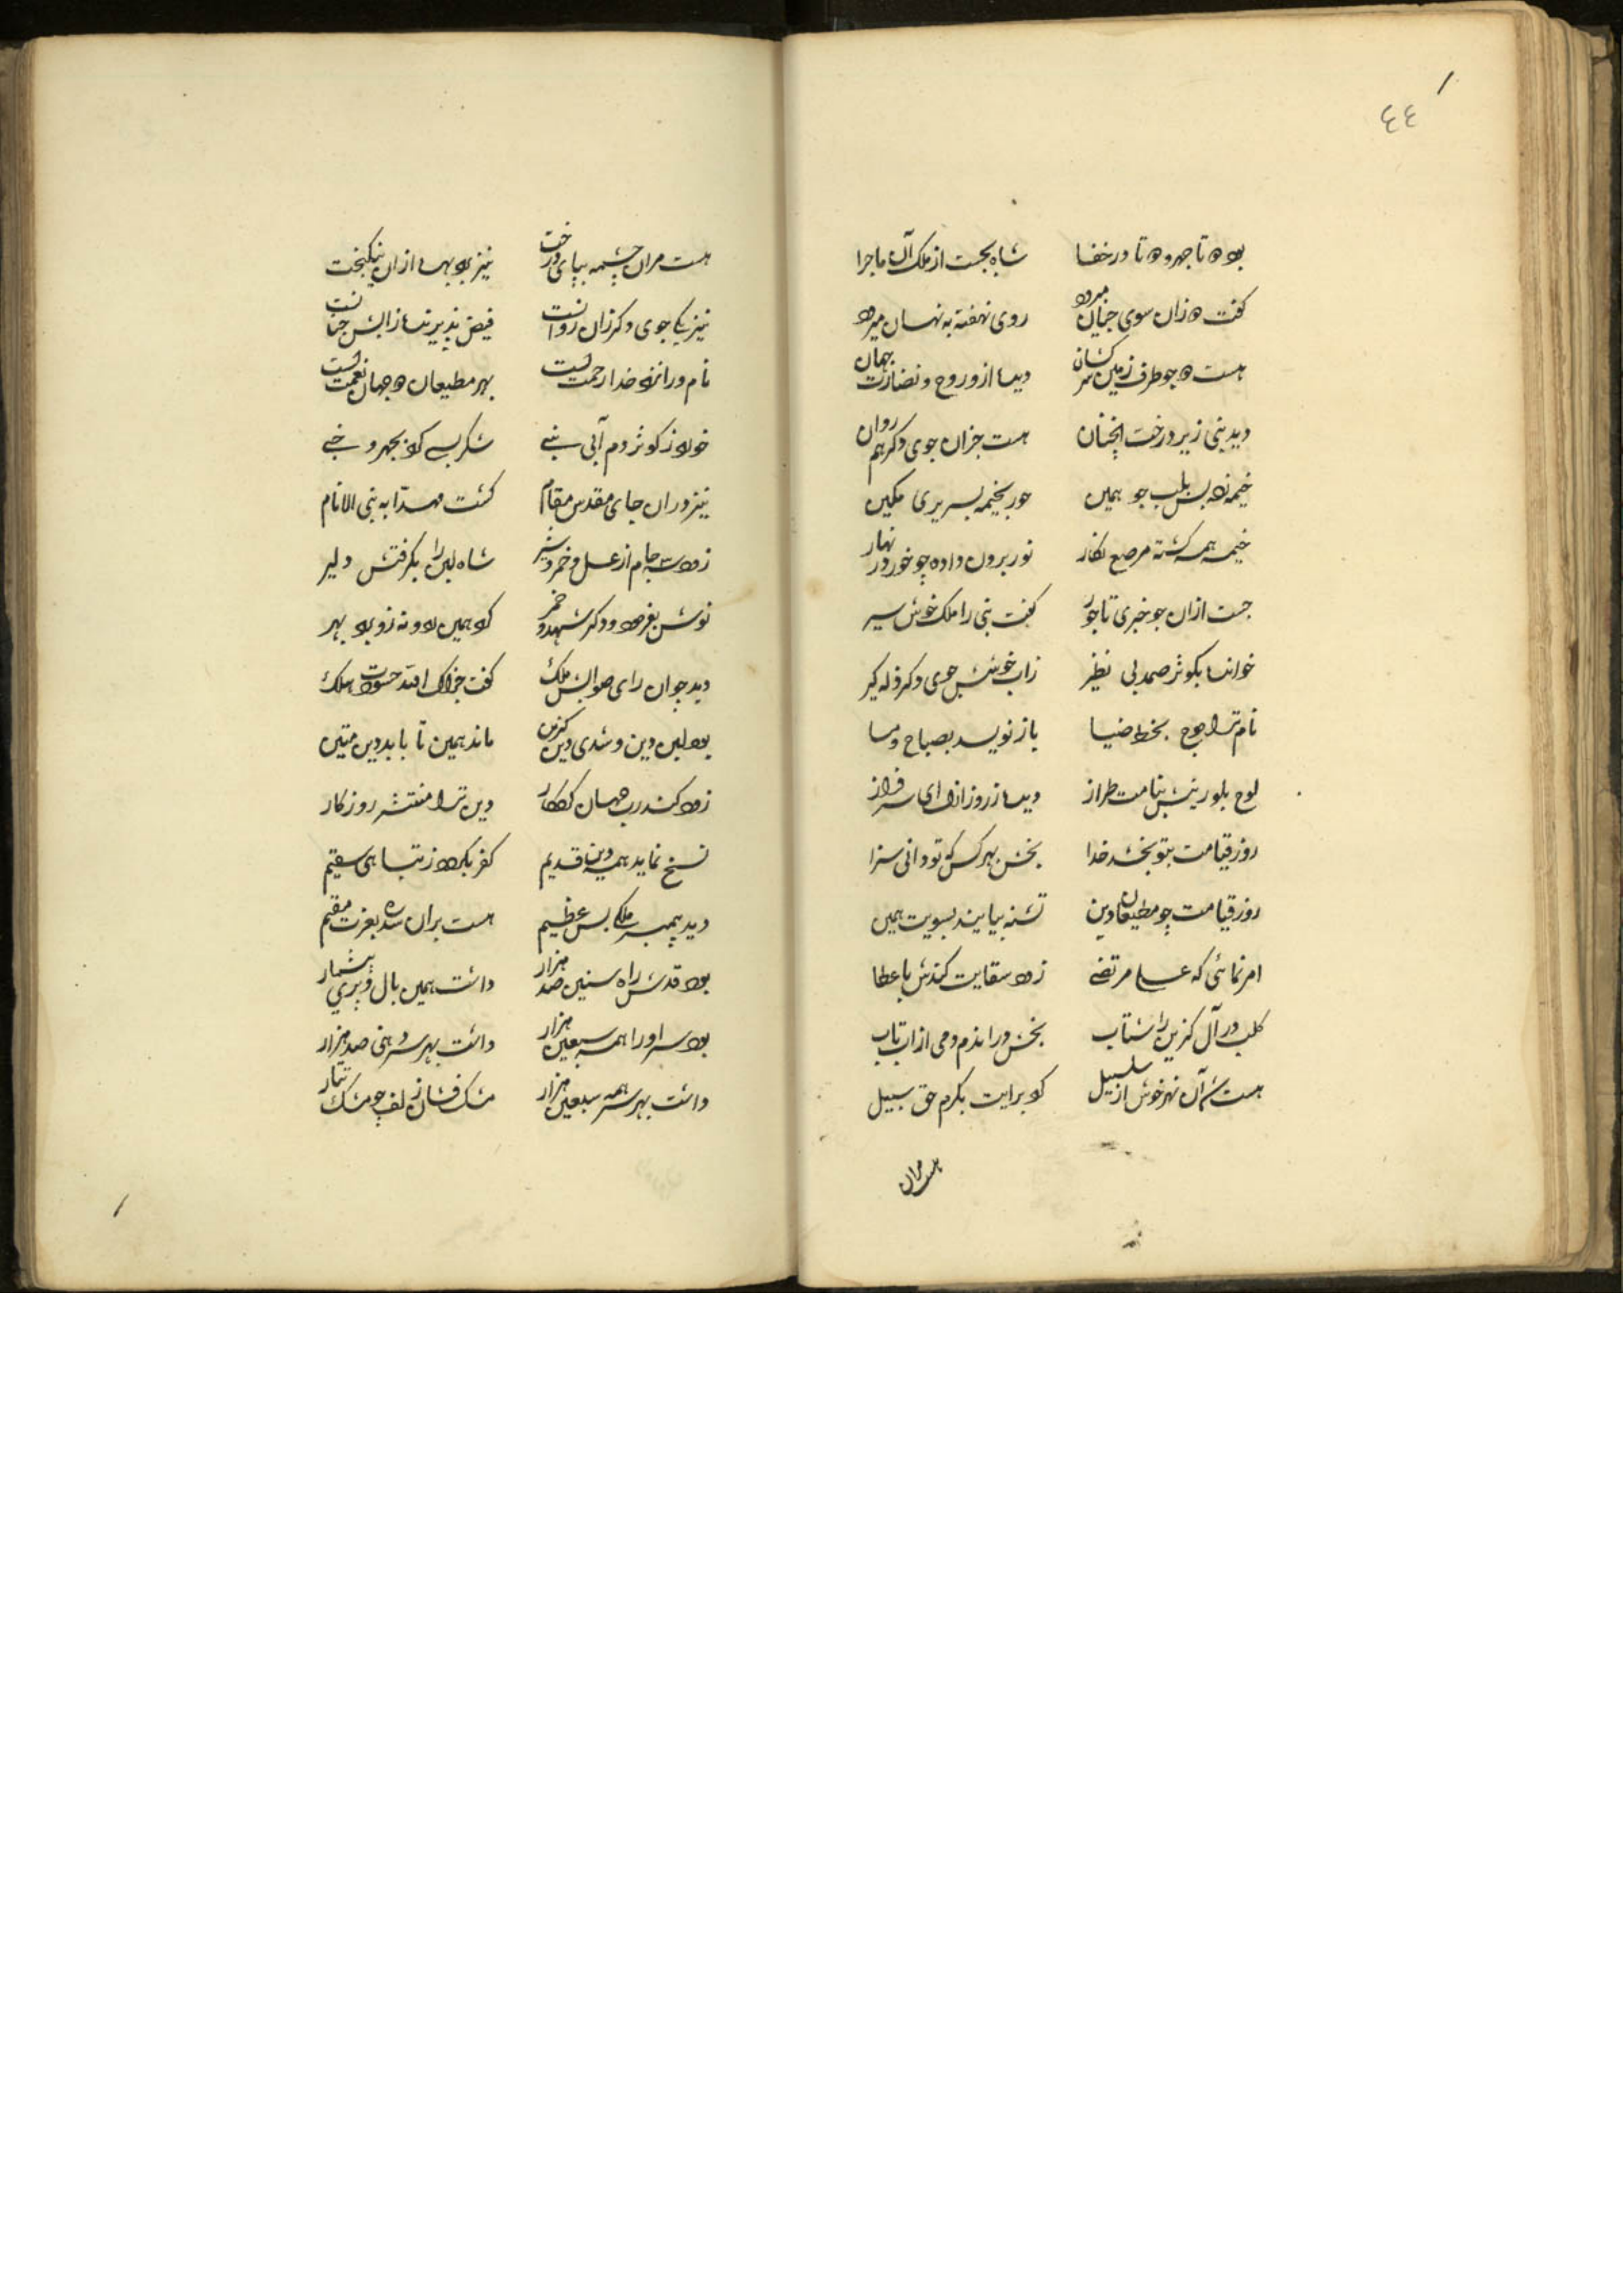 ٤٤
بود دو تا جهر و دو تا در خفا شاه بجست از ملک آن ماجرا
گفت دو زان سوی جنان میرود روی نهفته به نهان میرود
هست دو جو طرف زمین سر کشان دهر ازو روح و نضارت بهان
دید نبی زیر درخت آنچنان هست جزان جوی دکر هم روان
خیمه زده بس بلب جو همین حور بخیمه بسریری مکین
خیمه همه کشته مرصع نکار نور برون داده چو خور در نهار
جست ازان جو خبری تاجور گفت نبی را ملک خوش سیر
خواند بکوثر صمد بی نظیر زاب خوشش جوی دکر وله کیر
نام ترا بخط ضیا باز نویسد بصباح و مسا
لوح بلورینش بنامت طراز دهر ز روز ازل ای سرفراز
روز قیامت بتو بخشد خدا بخش بهر کس که تو دانی سزا
روز قیامت چو مطیعان دین تشنه بیایند بسویت همین
امر نمائی که علی مرتضی زود سقایت کندش با عطا
کلب در آل کزین را شتاب بخش ورا ندم ومی ازاب تاب
هست آن نهر خوش از سلسبیل کو برایت بکرم حق سبیل
هست مران
هست مران چشمه بپای درخت نیز بود بهر ازان نیکبخت
نیز یکی جوی دکر زان روانست فیض پذیرنده زآبش جنانست
نام ورا نزد خدا رحمتست بهر مطیعان دو جهان نعمتست
خورد ز کوثر دم آبی نبی شکر بسی کرد بجهر و خبی
نیز دران جای مقدس مقام کشت مهدا به نبی الانام
زود سه جام از عسل و خمر و شیر شاه لبن را بکرفتش دلیر
نوش بفرمود و دکر شهد و خمر کرد همین رد و نه زو برد بهر
دید چو آن رای صوابش ملک گفت جزاک الله حسودت هلک
بود لبن دین و شدی دین کزین ماند همین تا بابد دین متین
زود کند رب جهان کردکار دین ترا منتشر روزکار
نسخ نماید همه دین قدیم کفر بکردد ز تباهی سقیم
دید پیمبر ملکی بس عظیم هست بران سدره بعزت مقیم
بود قدش راه سنین صد هزار داشت همین بال و پری بیشمار
بود سر اورا همه سبعین هزار داشت بهر سر دهنی صد هزار
داشت بهر سر همه سبعین هزار مشک فشان زلف چو مشک تتار